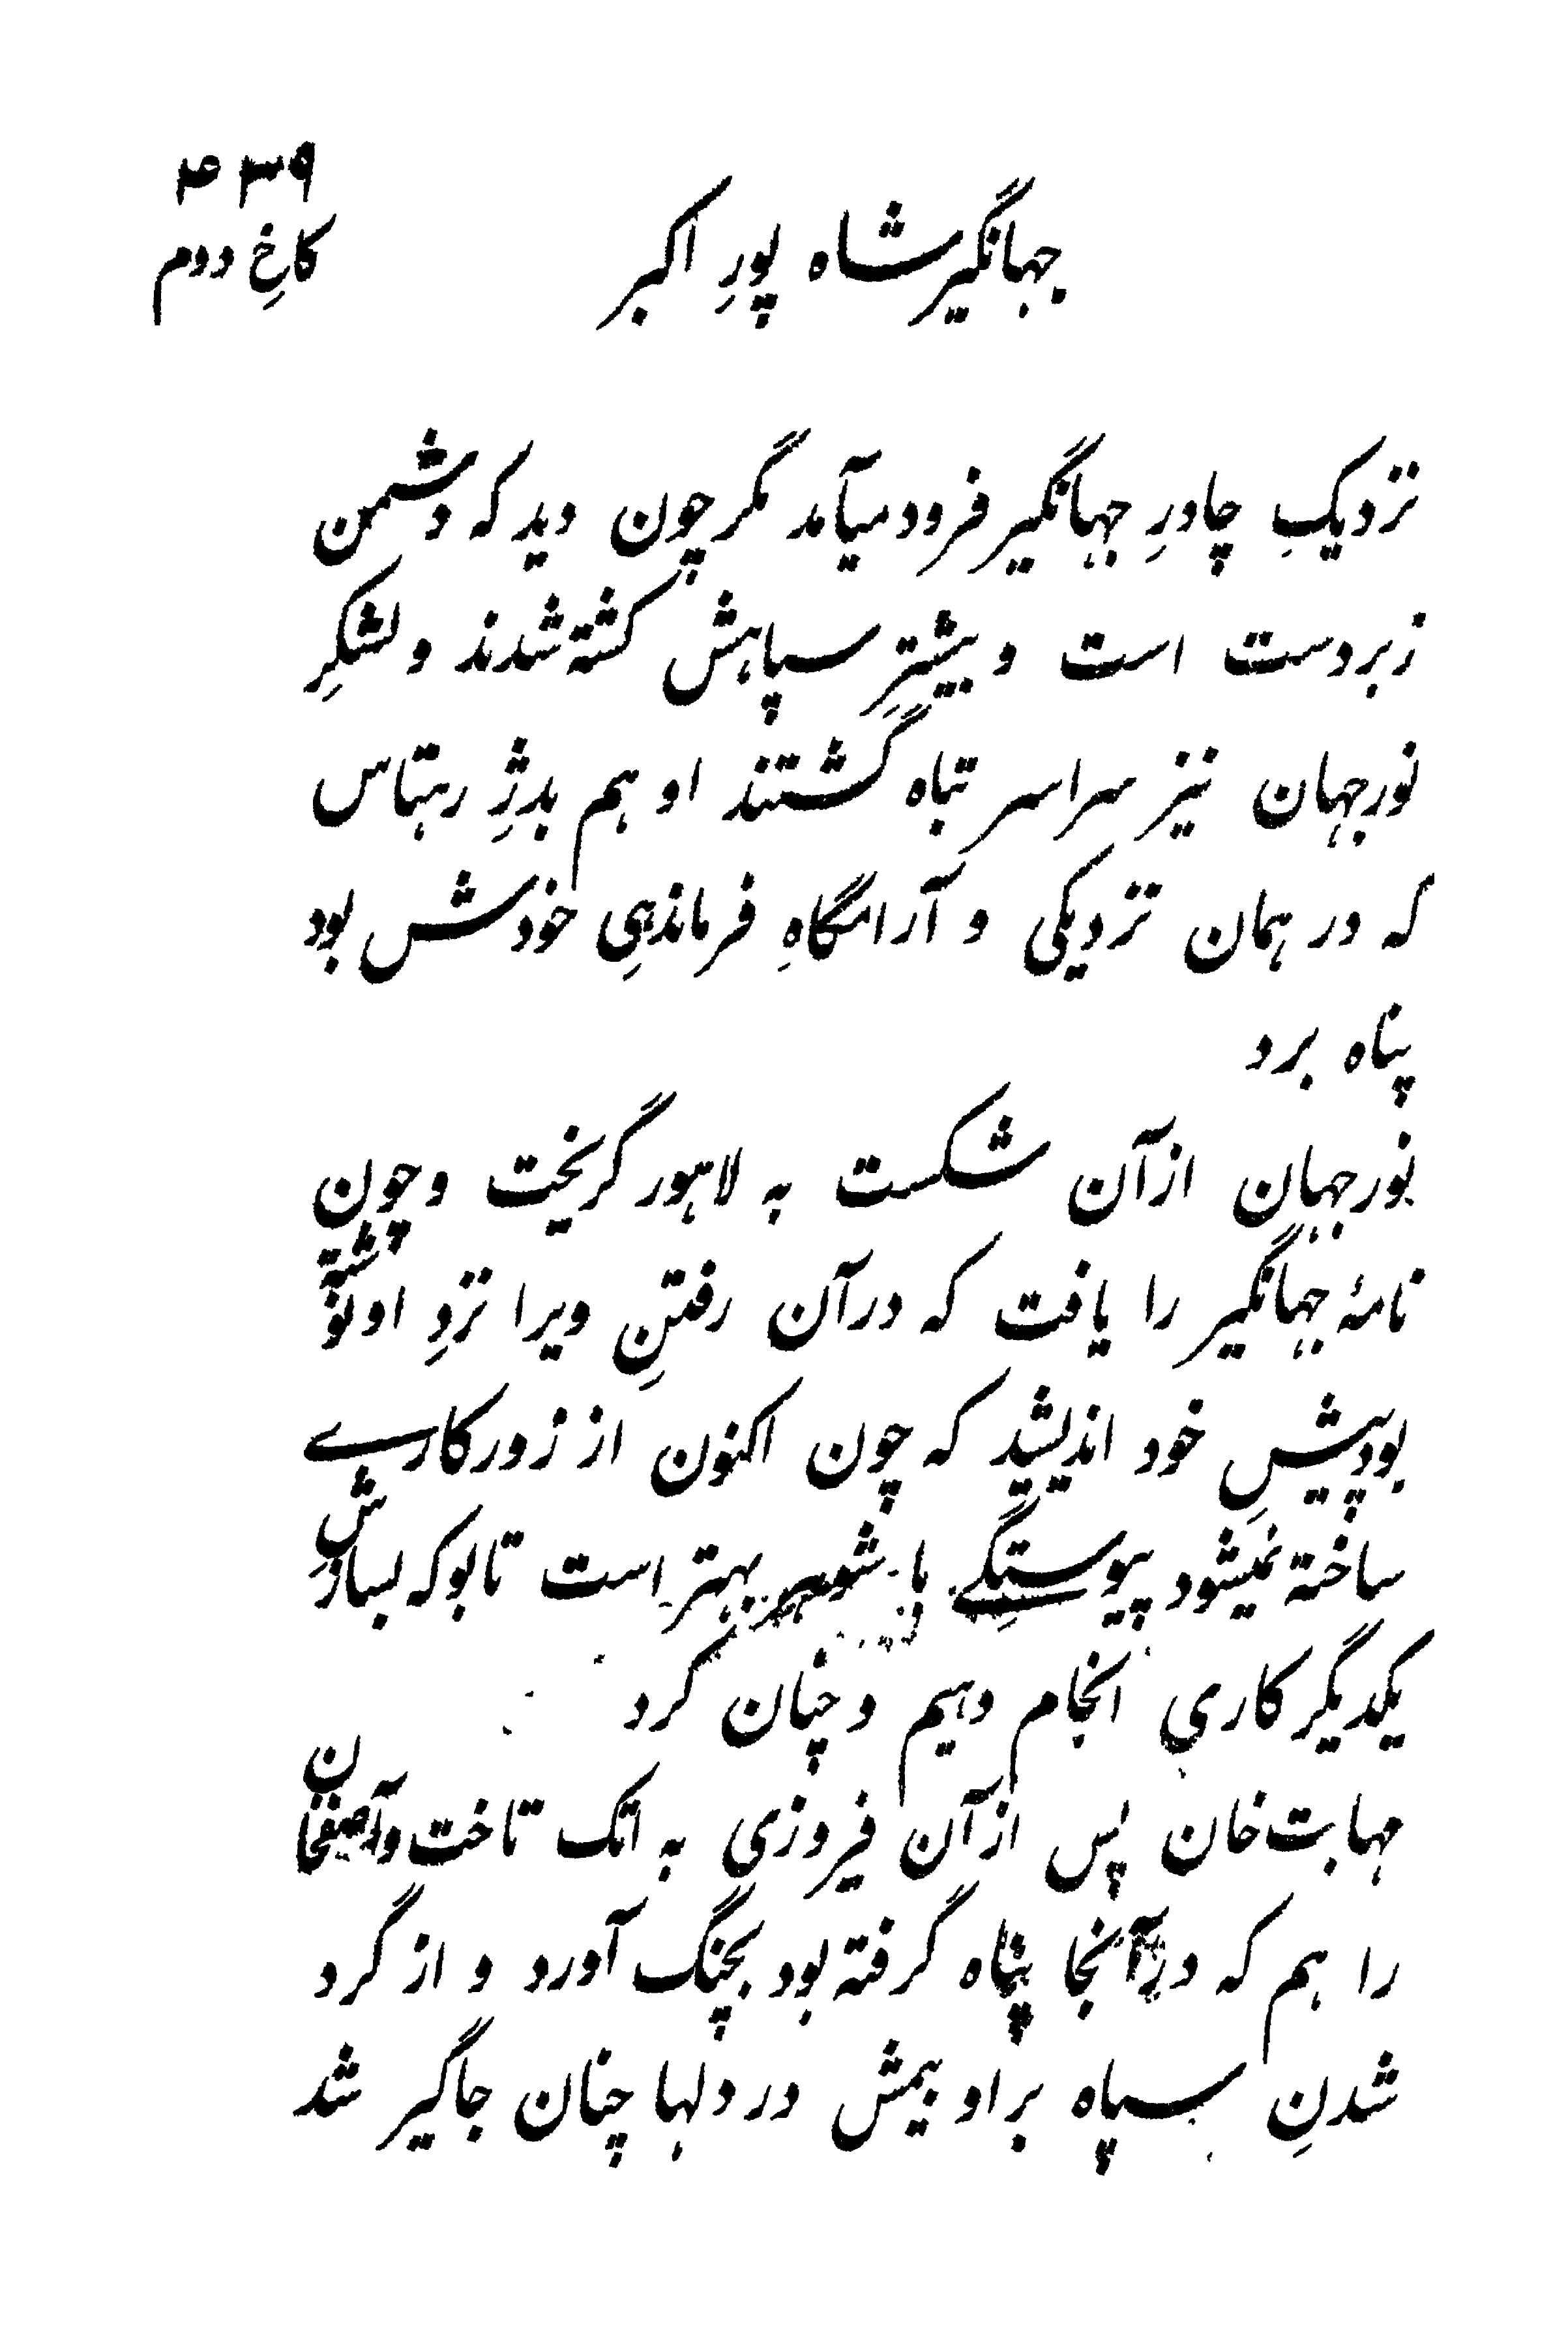 ۴۳۹
جهانگیر شاه پورِ اکبر
کاخِ دوم
نزدیکِ چادرِ جهانگیر فرود میآمد مگر چون دید که دشمن
زبردست است و بیشترِ سپاهش کشته شدند و لشکرِ
نورجهان نیز سراسر تباه گشتند او هم بدژِ رهتاس
که در همان نزدیکی و آرامگاهِ فرماندهیِ خودش بود
پناه برد
نورجهان از آن شکست به لاهور گریخت و چون
نامهٔ جهانگیر را یافت که در آن رفتنِ ویرا نزدِ او نوشته
بود پیشِ خود اندیشید که چون اکنون از زور کارے
ساخته نمیشود پیوستگے با شوهر بهتر است تا بو که بسازشِ
یکدیگر کاری انجام دهیم و چنان کرد
مهابت خان پس از آن فیروزی به اتک تاخت و آصفخان
را هم که در آنجا پناه گرفته بود بچنگ آورد و از گرد
شدنِ سپاه بر او بیمش در دلها چنان جاگیر شد